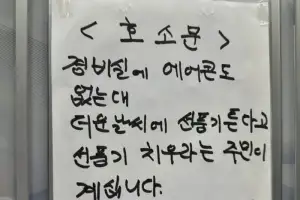 < 호소문 >
경비실에 에어콘도
없는대
더운날씨에 선풍기튼다고
선풍기 치우라는 주민이
계십니다.